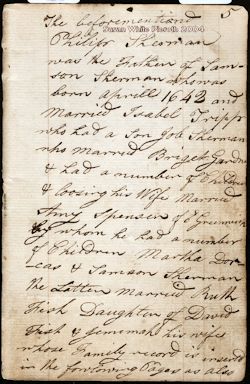 5
The beforementiond
Susan White Pieroth 2004
Philip Sherman
was the Father of Sam-
son Sherman who was
born aprill 1642 and
Married Isabel Tripp
who had a Son Job Sherman
who Married Briget Gardner
& had a number of Children
& loosing his Wife Married
Amy Spencer of Et Greenwich
by whom he had a number
of Children Martha Dor-
cas & Samson Sherman
the Latter Married Ruth
Fish Daughter of David
Fish & Jememah his wife
whose Family record is inserted
in the forlowing Pages as also